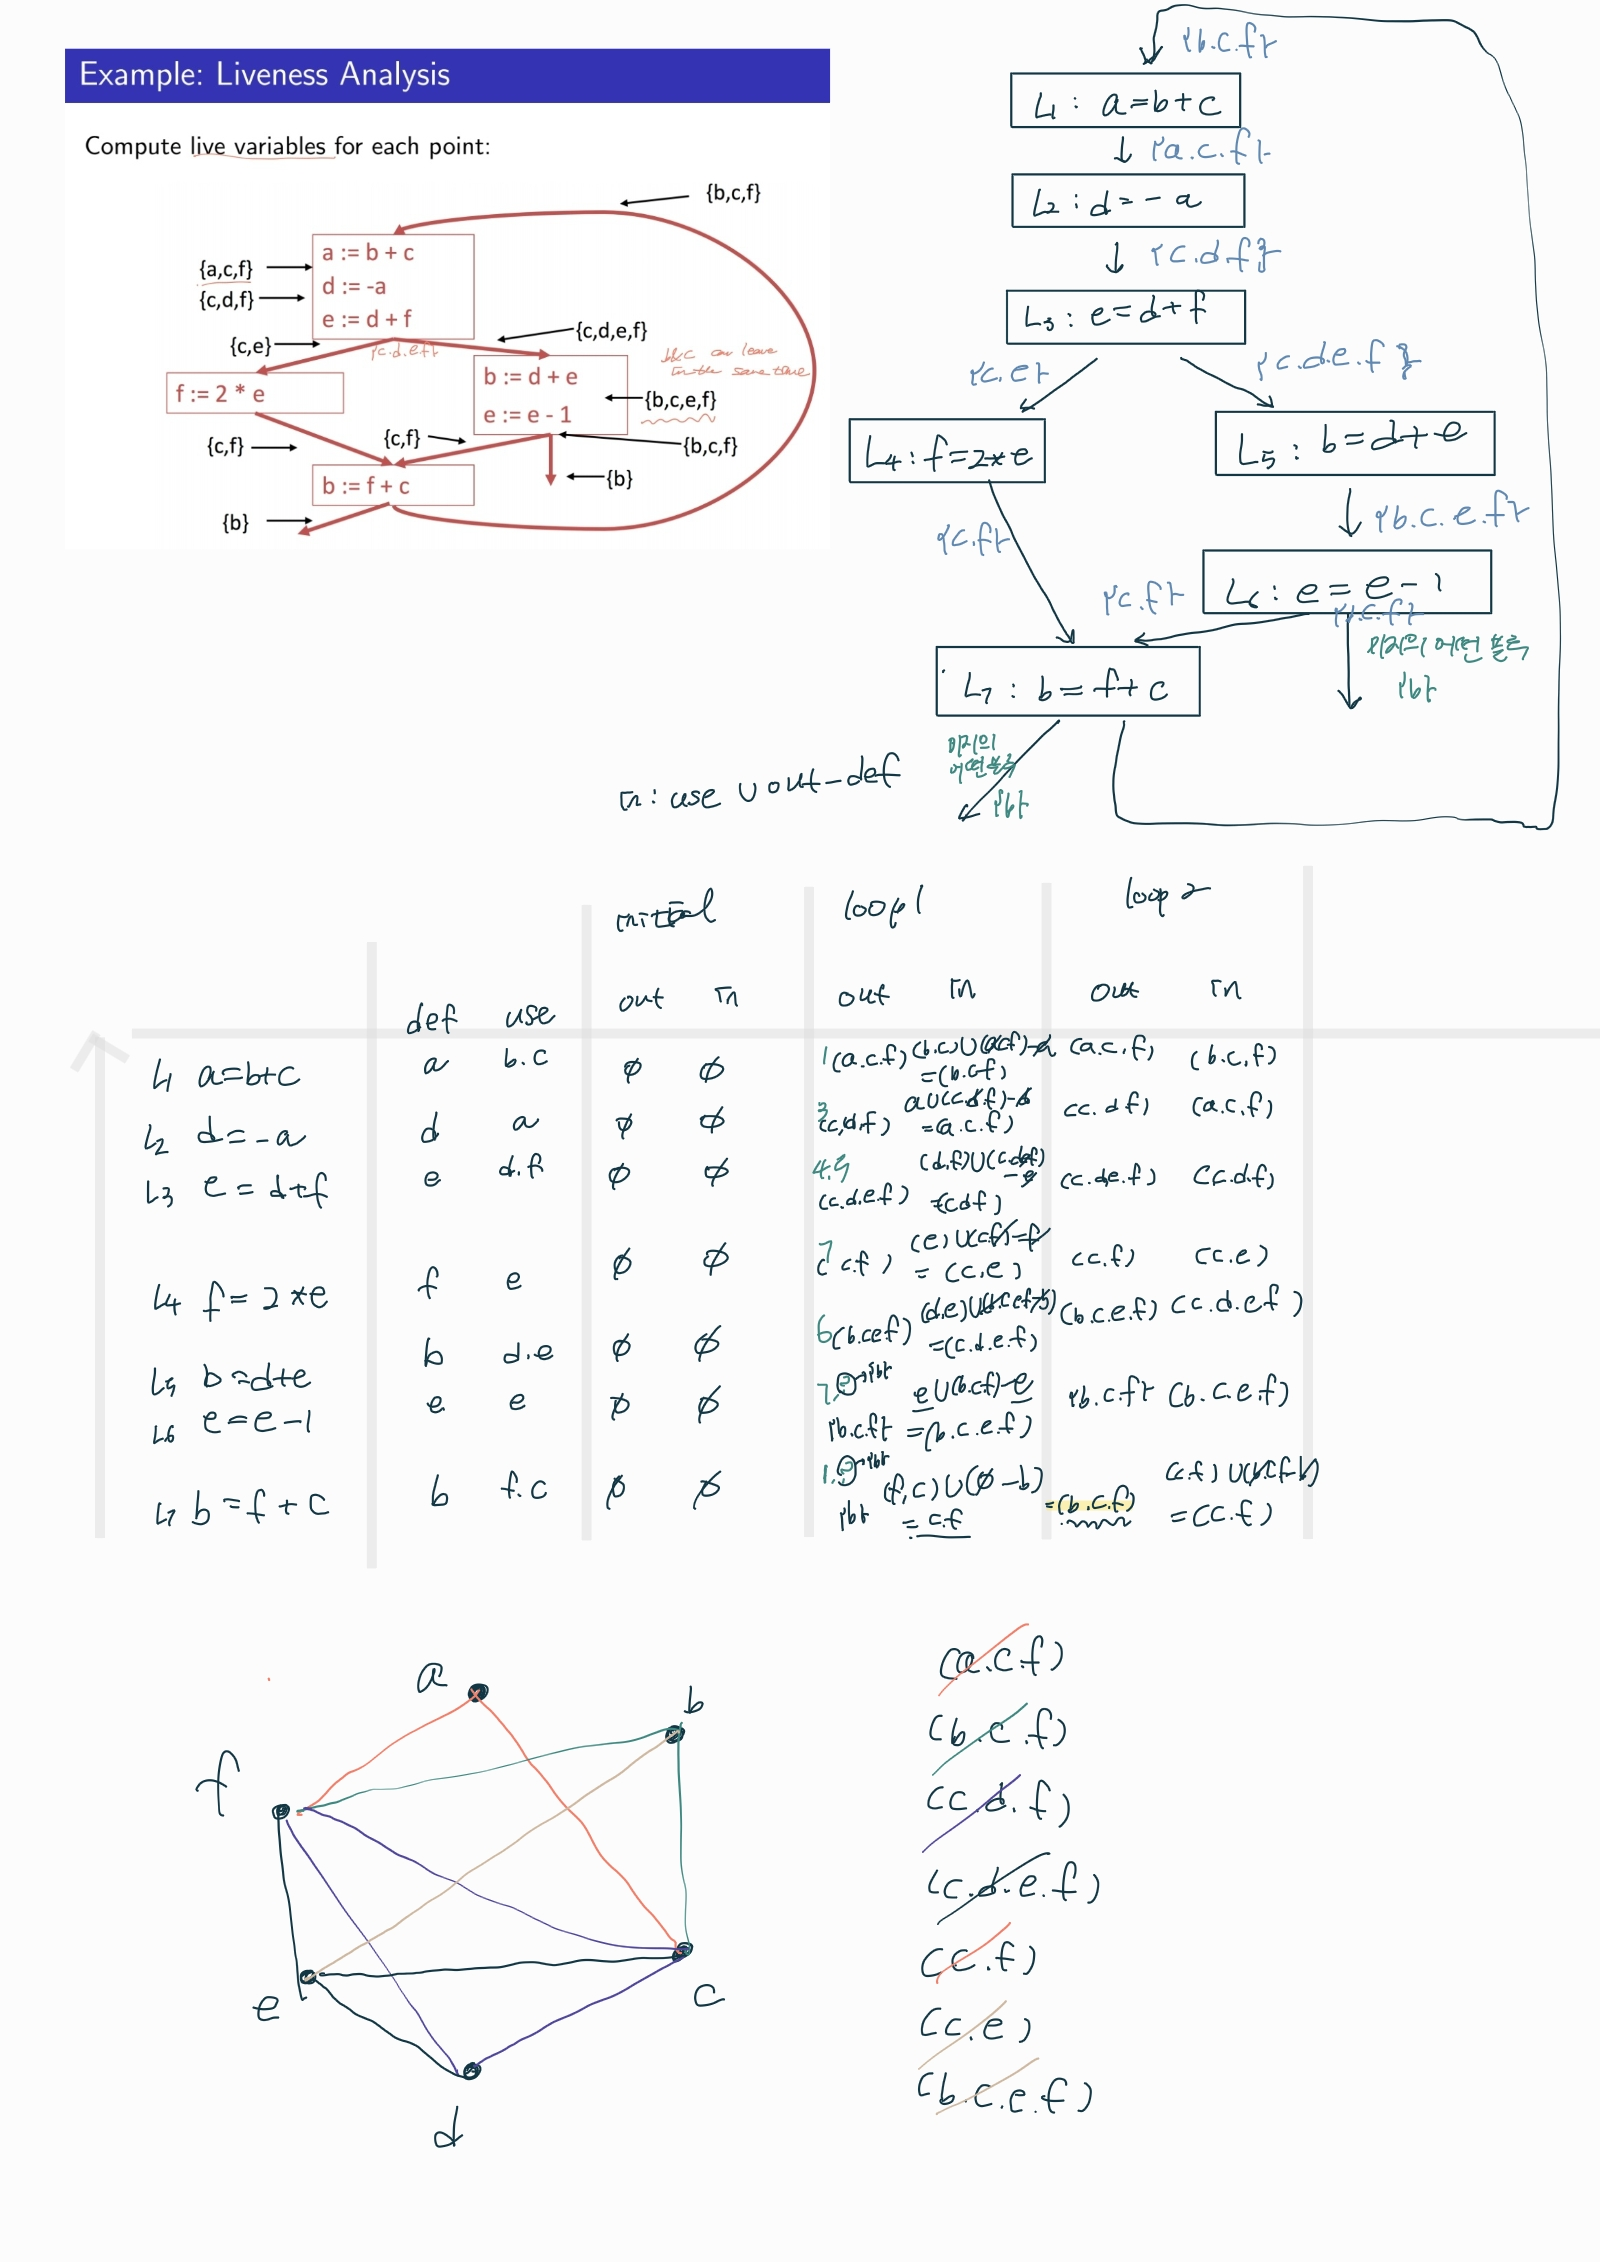 Example: Liveness Analysis
Compute live variables for each point:
{b,c,f}
a := b + c
{a,c,f}
d := -a
{c,d,f}
e := d + f
{c,e}
{c,d,e,f}
{c.d.e.f}
b&c can leave
in the same time
f := 2 * e
b := d + e
{b,c,e,f}
e := e - 1
{c,f}
{c,f}
{b,c,f}
{b}
b := f + c
{b}
{b.c.f}
L1 : a=b+c
{a.c.f}
L2 : d=-a
{c.d.f}
L3 : e=d+f
{c.e}
{c.d.e.f}
L4 : f=2*e
L5 : b=d+e
{c.f}
{b.c.e.f}
{c.f}
L6 : e=e-1
{b.c.f}
미지의 어떤 블록
{b}
L7 : b=f+c
미지의
어떤블록
{b}
in : use ∪ out-def
initial loop1 loop2
def use out in out in out in
L1 a=b+c a b.c ∅ ∅ 1 (a.c.f) (b.c)∪(acf)-a (a.c.f) (b.c.f)
=(b.c.f)
L2 d=-a d a ∅ ∅ 3 (c,d,f) a∪(c.d.f)-d (c.d.f) (a.c.f)
=(a.c.f)
L3 e=d+f e d.f ∅ ∅ 4.5 (d.f)∪(c.def)-e (c.d.e.f) (c.d.f)
(c.d.e.f) =(cdf)
L4 f=2*e f e ∅ ∅ 7 (c.f) (e)∪(c.f)-f (c.f) (c.e)
=(c.e)
L5 b=d+e b d.e ∅ ∅ 6 (b.c.e.f) (d.e)∪(b.c.e.f)-b (b.c.e.f) (c.d.e.f)
=(c.d.e.f)
L6 e=e-1 e e ∅ ∅ 7,? →{b} e∪(b.c.f)-e {b.c.f} (b.c.e.f)
{b.c.f} =(b.c.e.f)
L7 b=f+c b f.c ∅ ∅ 1,? →{b} (f,c)∪(∅-b) =(b.c.f) (c.f)∪(b.c.f-b)
{b} =c.f =(c.f)
a
b
f
e
c
d
(a.c.f)
(b.c.f)
(c.d.f)
(c.d.e.f)
(c.f)
(c.e)
(b.c.e.f)